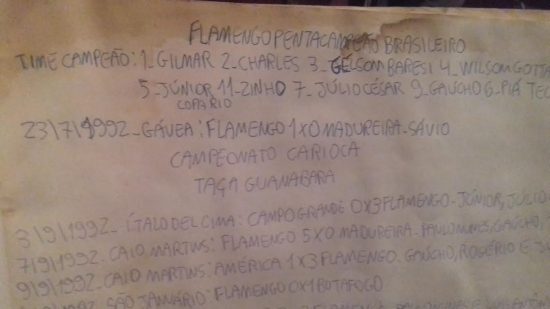 FLAMENGO PENTACAMPEÃO BRASILEIRO
TIME CAMPEÃO: 1_ GILMAR 2_ CHARLES 3_ GÉLSOM BARESI 4_ WILSOM GOTTA
5_ JÚNIOR 11_ ZINHO 7_ JÚLIO CÉSAR 9_ GAÚCHO 6_ PIÁ TEC
COPA RIO
23/7/1992_ GÁVEA: FLAMENGO 1X0 MADUREIRA_ SÁVIO
CAMPEONATO CARIOCA
TAÇA GUANABARA
3/9/1992_ ÍTALO DEL CIMA: CAMPO GRANDE 0X3 FLAMENGO_ JÚNIOR, JÚLIO
7/9/1992_ CAIO MARTINS: FLAMENGO 5X0 MADUREIRA_ PAULO NUNES, GAÚCHO,
9/9/1992_ CAIO MARTINS: AMÉRICA 1X3 FLAMENGO_ GAÚCHO, ROGÉRIO E
1992_ SÃO JANUÁRIO: FLAMENGO 0X1 BOTAFOGO